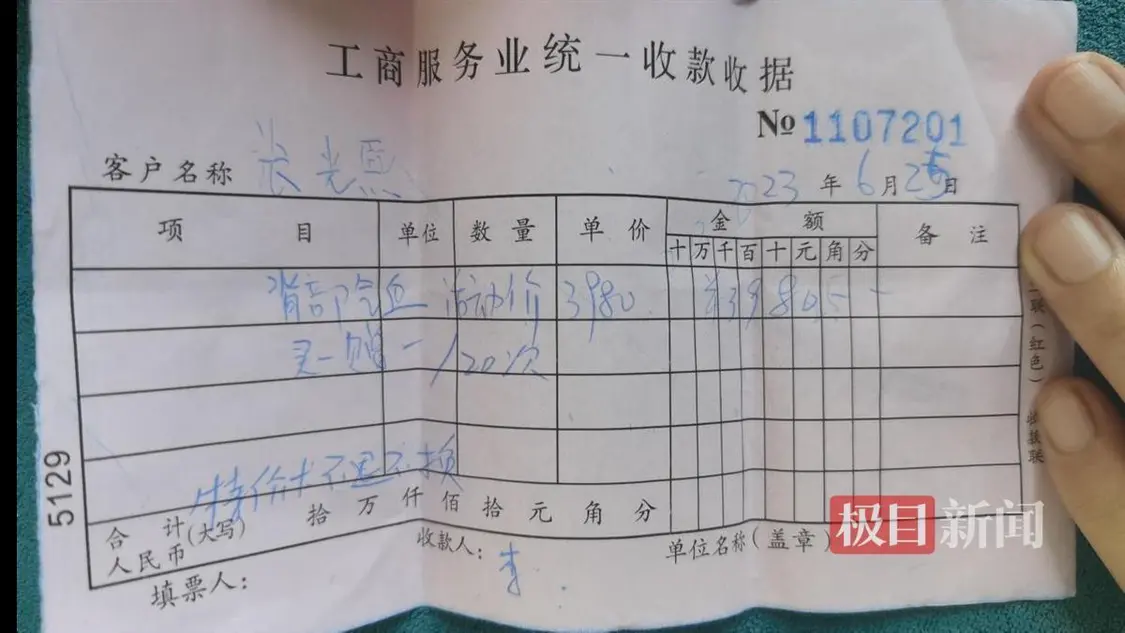 工商服务业统一收款收据
№ 1107201
客户名称 张光
2023 年 6 月 25 日
项 目 单位 数量 单价 金 额 备注
十 万 千 百 十 元 角 分
背部 活动价 3980 ¥3980
买一赠一/20次
特价卡不退不换
合 计 人民币 (大写) 拾 万 仟 佰 拾 元 角 分
收款人: 李
单位名称(盖章)
填票人:
5129
二联(红色) 收据联
极目新闻